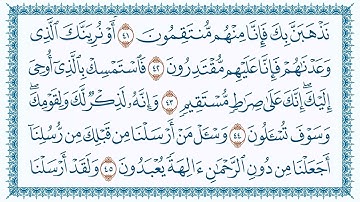 نَذْهَبَنَّ بِكَ فَإِنَّا مِنْهُم مُّنتَقِمُونَ ٤١ أَوْ نُرِيَنَّكَ ٱلَّذِى
وَعَدْنَٰهُمْ فَإِنَّا عَلَيْهِم مُّقْتَدِرُونَ ٤٢ فَٱسْتَمْسِكْ بِٱلَّذِىٓ أُوحِىَ
إِلَيْكَ ۖ إِنَّكَ عَلَىٰ صِرَٰطٍ مُّسْتَقِيمٍ ٤٣ وَإِنَّهُۥ لَذِكْرٌ لَّكَ وَلِقَوْمِكَ ۖ
وَسَوْفَ تُسْـَٔلُونَ ٤٤ وَسْـَٔلْ مَنْ أَرْسَلْنَا مِن قَبْلِكَ مِن رُّسُلِنَآ
أَجَعَلْنَا مِن دُونِ ٱلرَّحْمَٰنِ ءَالِهَةً يُعْبَدُونَ ٤٥ وَلَقَدْ أَرْسَلْنَا